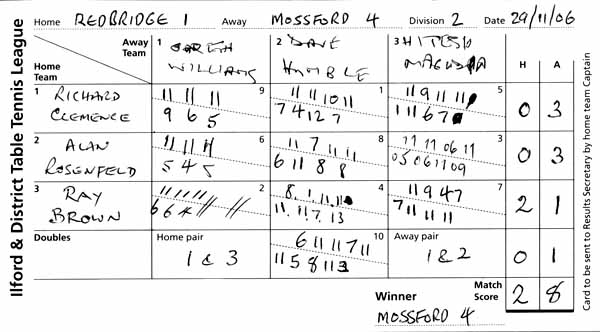 Ilford & District Table Tennis League
Home REDBRIDGE 1 Away MOSSFORD 4 Division 2 Date 29/11/06
Away Team
Home Team
1 WILLIAMS
2 DAVE HUMBLE
3 HITESH
H A
1 RICHARD CLEMENCE
9
11 11 11
9 6 5
1
11 11 10 11
7 4 12 7
5
11 9 11 11
1 11 6 7
0 3
2 ALAN ROSENFELD
6
11 11 11
5 4 5
8
11 7 11 11
6 11 8 8
3
11 11 06 11
05 06 11 09
0 3
3 RAY BROWN
2
11 11 11
6 6
4
8
11 11 7 13
7
11 9 4 7
7 11 11 11
2 1
Doubles
Home pair
1 & 3
10
6 11 11 7 11
11 5 8 11 3
Away pair
1 & 2
0 1
Winner
MOSSFORD 4
Match Score 2 8
Card to be sent to Results Secretary by home team Captain